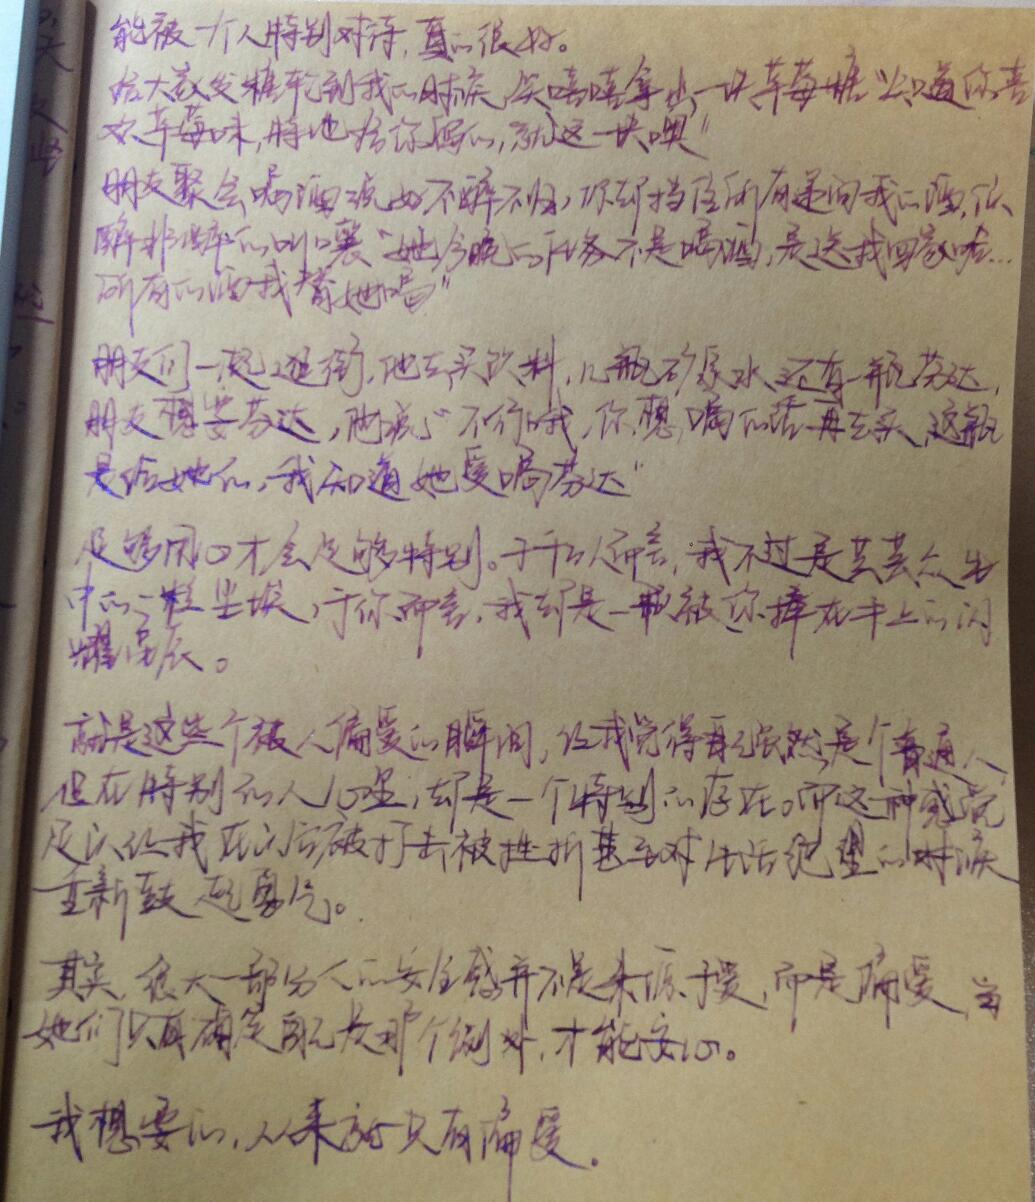 能被一个人特别对待,真的很好。
给大家发糖轮到我的时候,笑嘻嘻拿出一块草莓糖“知道你喜
欢草莓味,特地给你留的,就这一块噢”
朋友聚会喝酒说好不醉不归,你却挡住所有递向我的酒,似
醉非醉的叫嚷“她今晚的任务不是喝酒,是送我回家哈…
所有的酒我替她喝”
朋友们一起逛街,他去买饮料,几瓶矿泉水还有一瓶芬达,
朋友想要芬达,他说“不行哦,你想喝的话再去买,这瓶
是给她的,我知道她爱喝芬达”
足够用心才会足够特别。于千万人而言,我不过是芸芸众生
中的一粒尘埃,于你而言,我却是一颗被你捧在手上的闪
耀星辰。
就是这些个被人偏爱的瞬间,让我觉得自己虽然是个普通人,
但在特别的人心里,却是一个特别的存在。而这一种感觉
足以让我在以后被打击被挫折甚至对生活绝望的时候
重新鼓起勇气。
其实,很大一部分人的安全感并不是来源于爱,而是偏爱,当
她们认真确定自己是那个例外,才能安心。
我想要的,从来都只有偏爱。